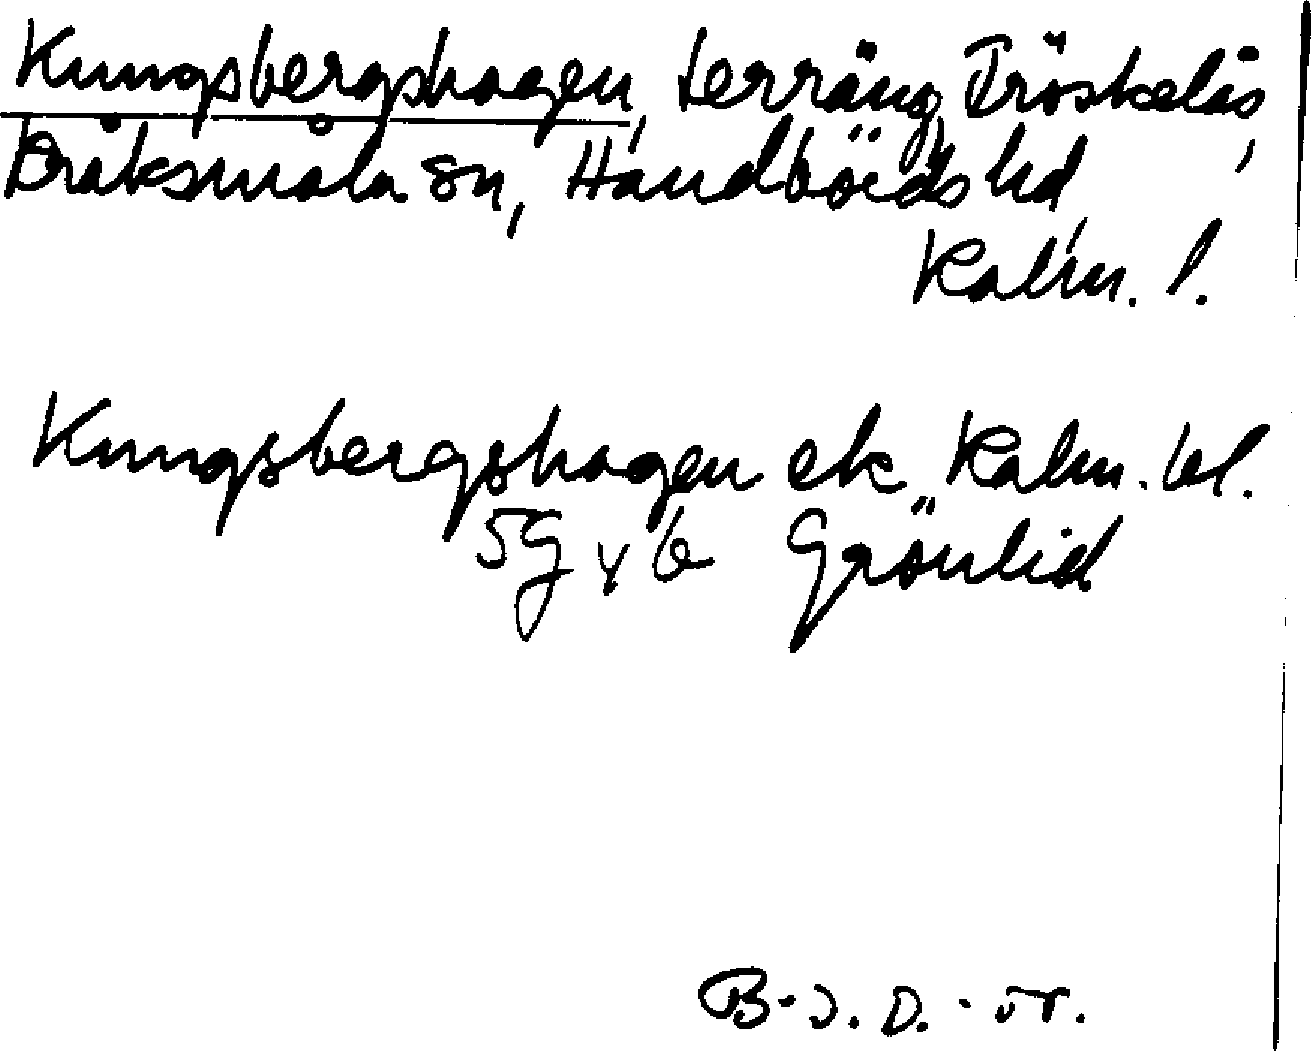 Kungsbergshagen, terräng, Tröskelås,
Bråksmåla sn, Handbörds hd,
Kalm. l.
Kungsbergshagen ek. Kalm. bl.
5G y b Grönlid
B-J. D.